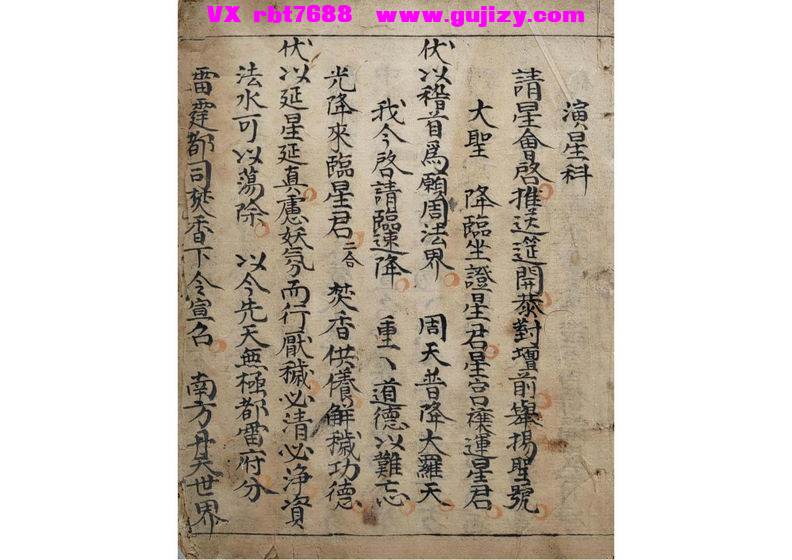 VX rbt7688 www.gujizy.com
演星科
請星會啓推送筵開恭對壇前舉揚聖號
大聖 降臨坐證星君星宮禳運星君
伏以稽首為願周法界 周天普降大羅天
我今啓請臨速降 重丶道德以難忘
光降來臨星君 二合 焚香供養解穢功德
伏以延星延真慮妖氛而行厭穢必清必淨資
法水可以蕩除 以今先天無極都雷府分
雷霆都司焚香下令宣召 南方丹天世界